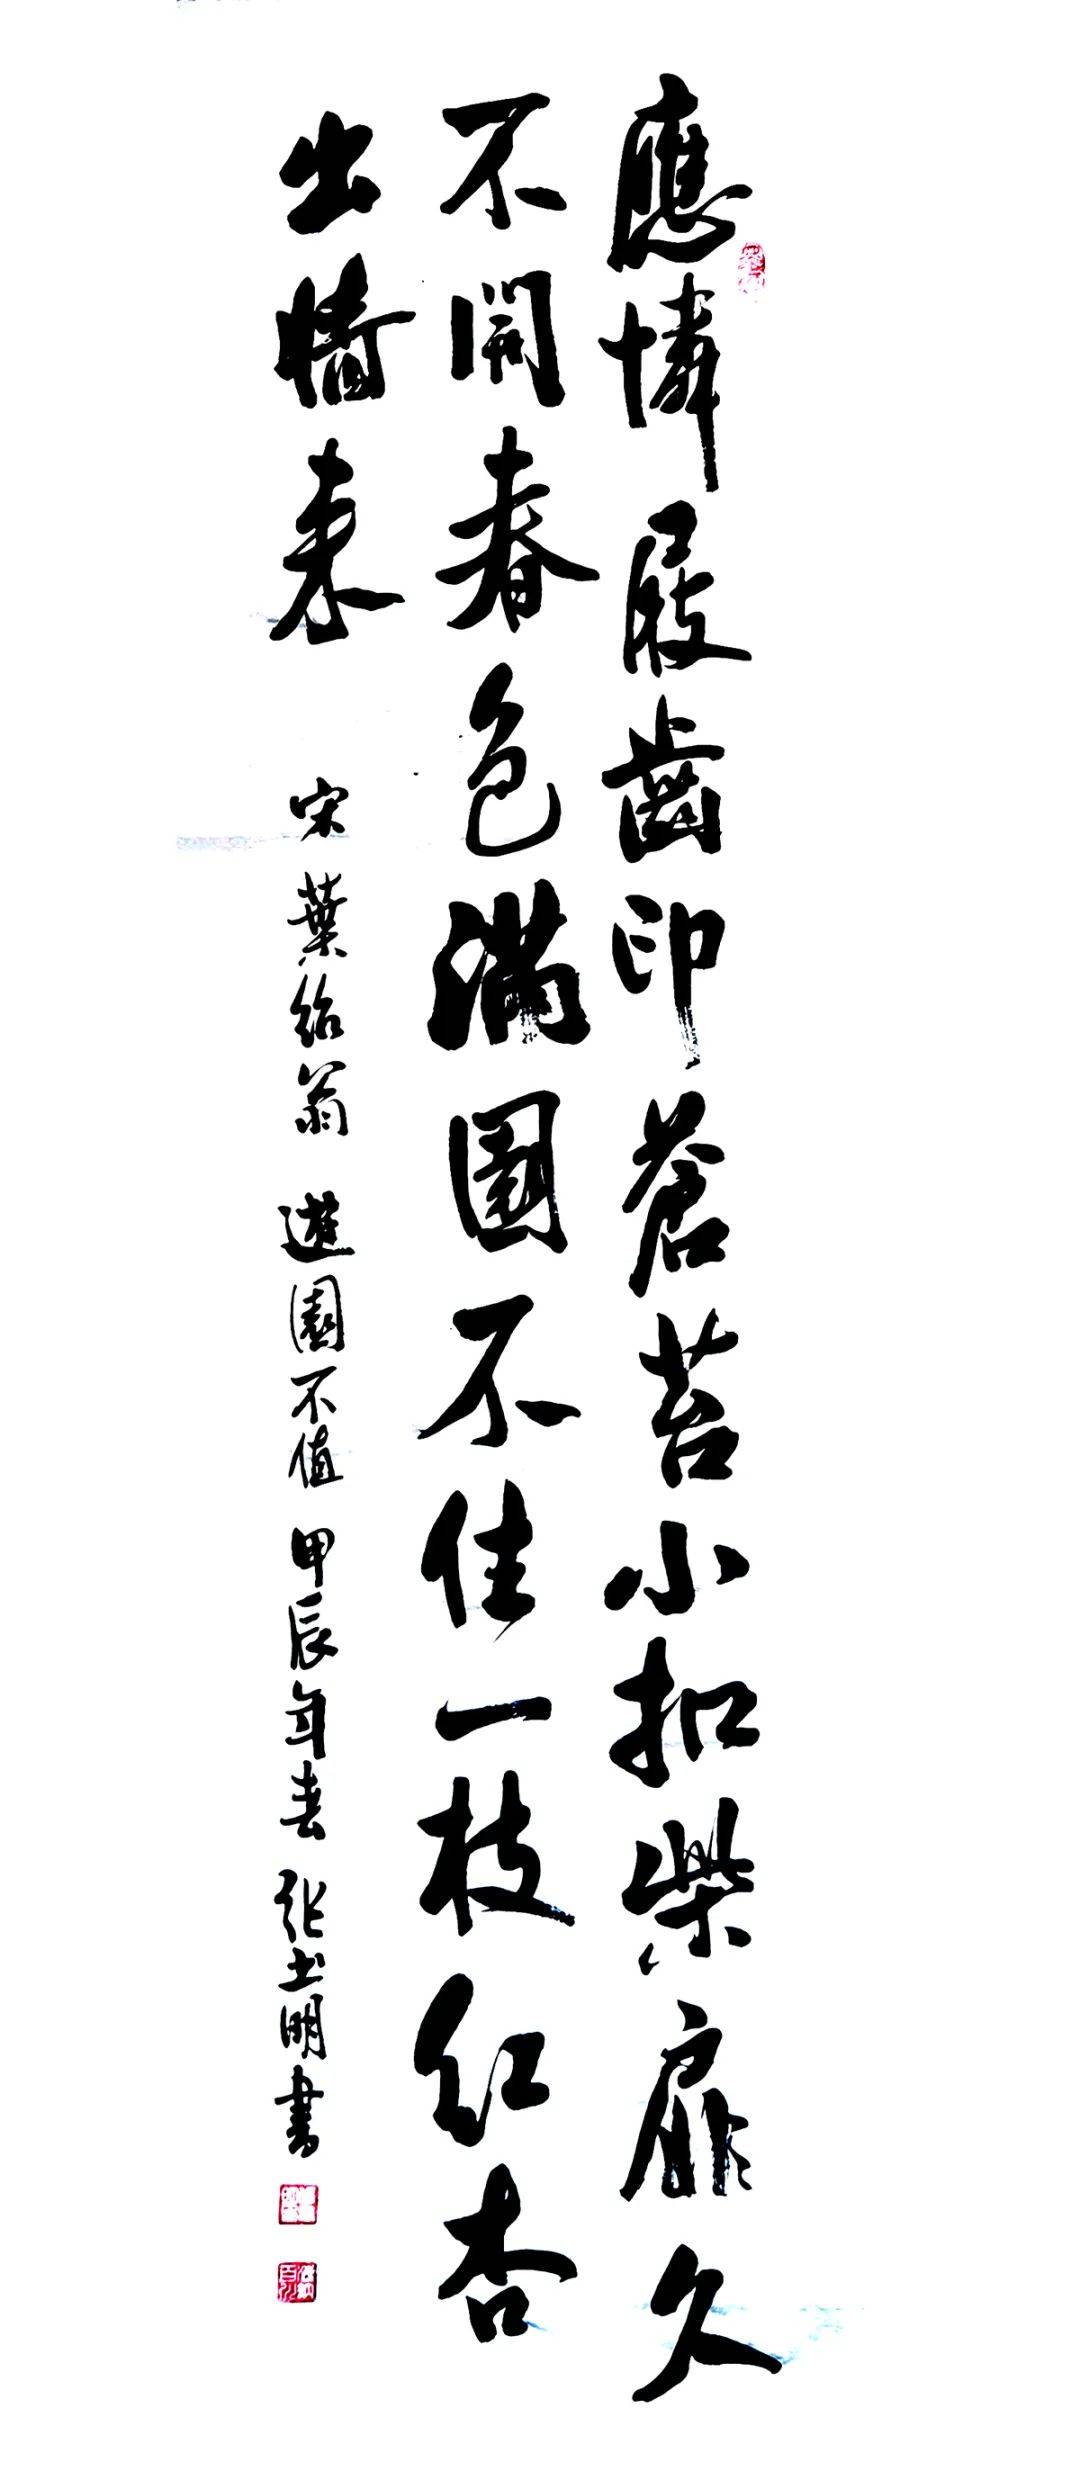 應憐屐齒印蒼苔小扣柴扉久
不開春色滿園不住一枝红杏
出墻来 宋 葉紹翁 遊園不值 甲辰年春 张士明書